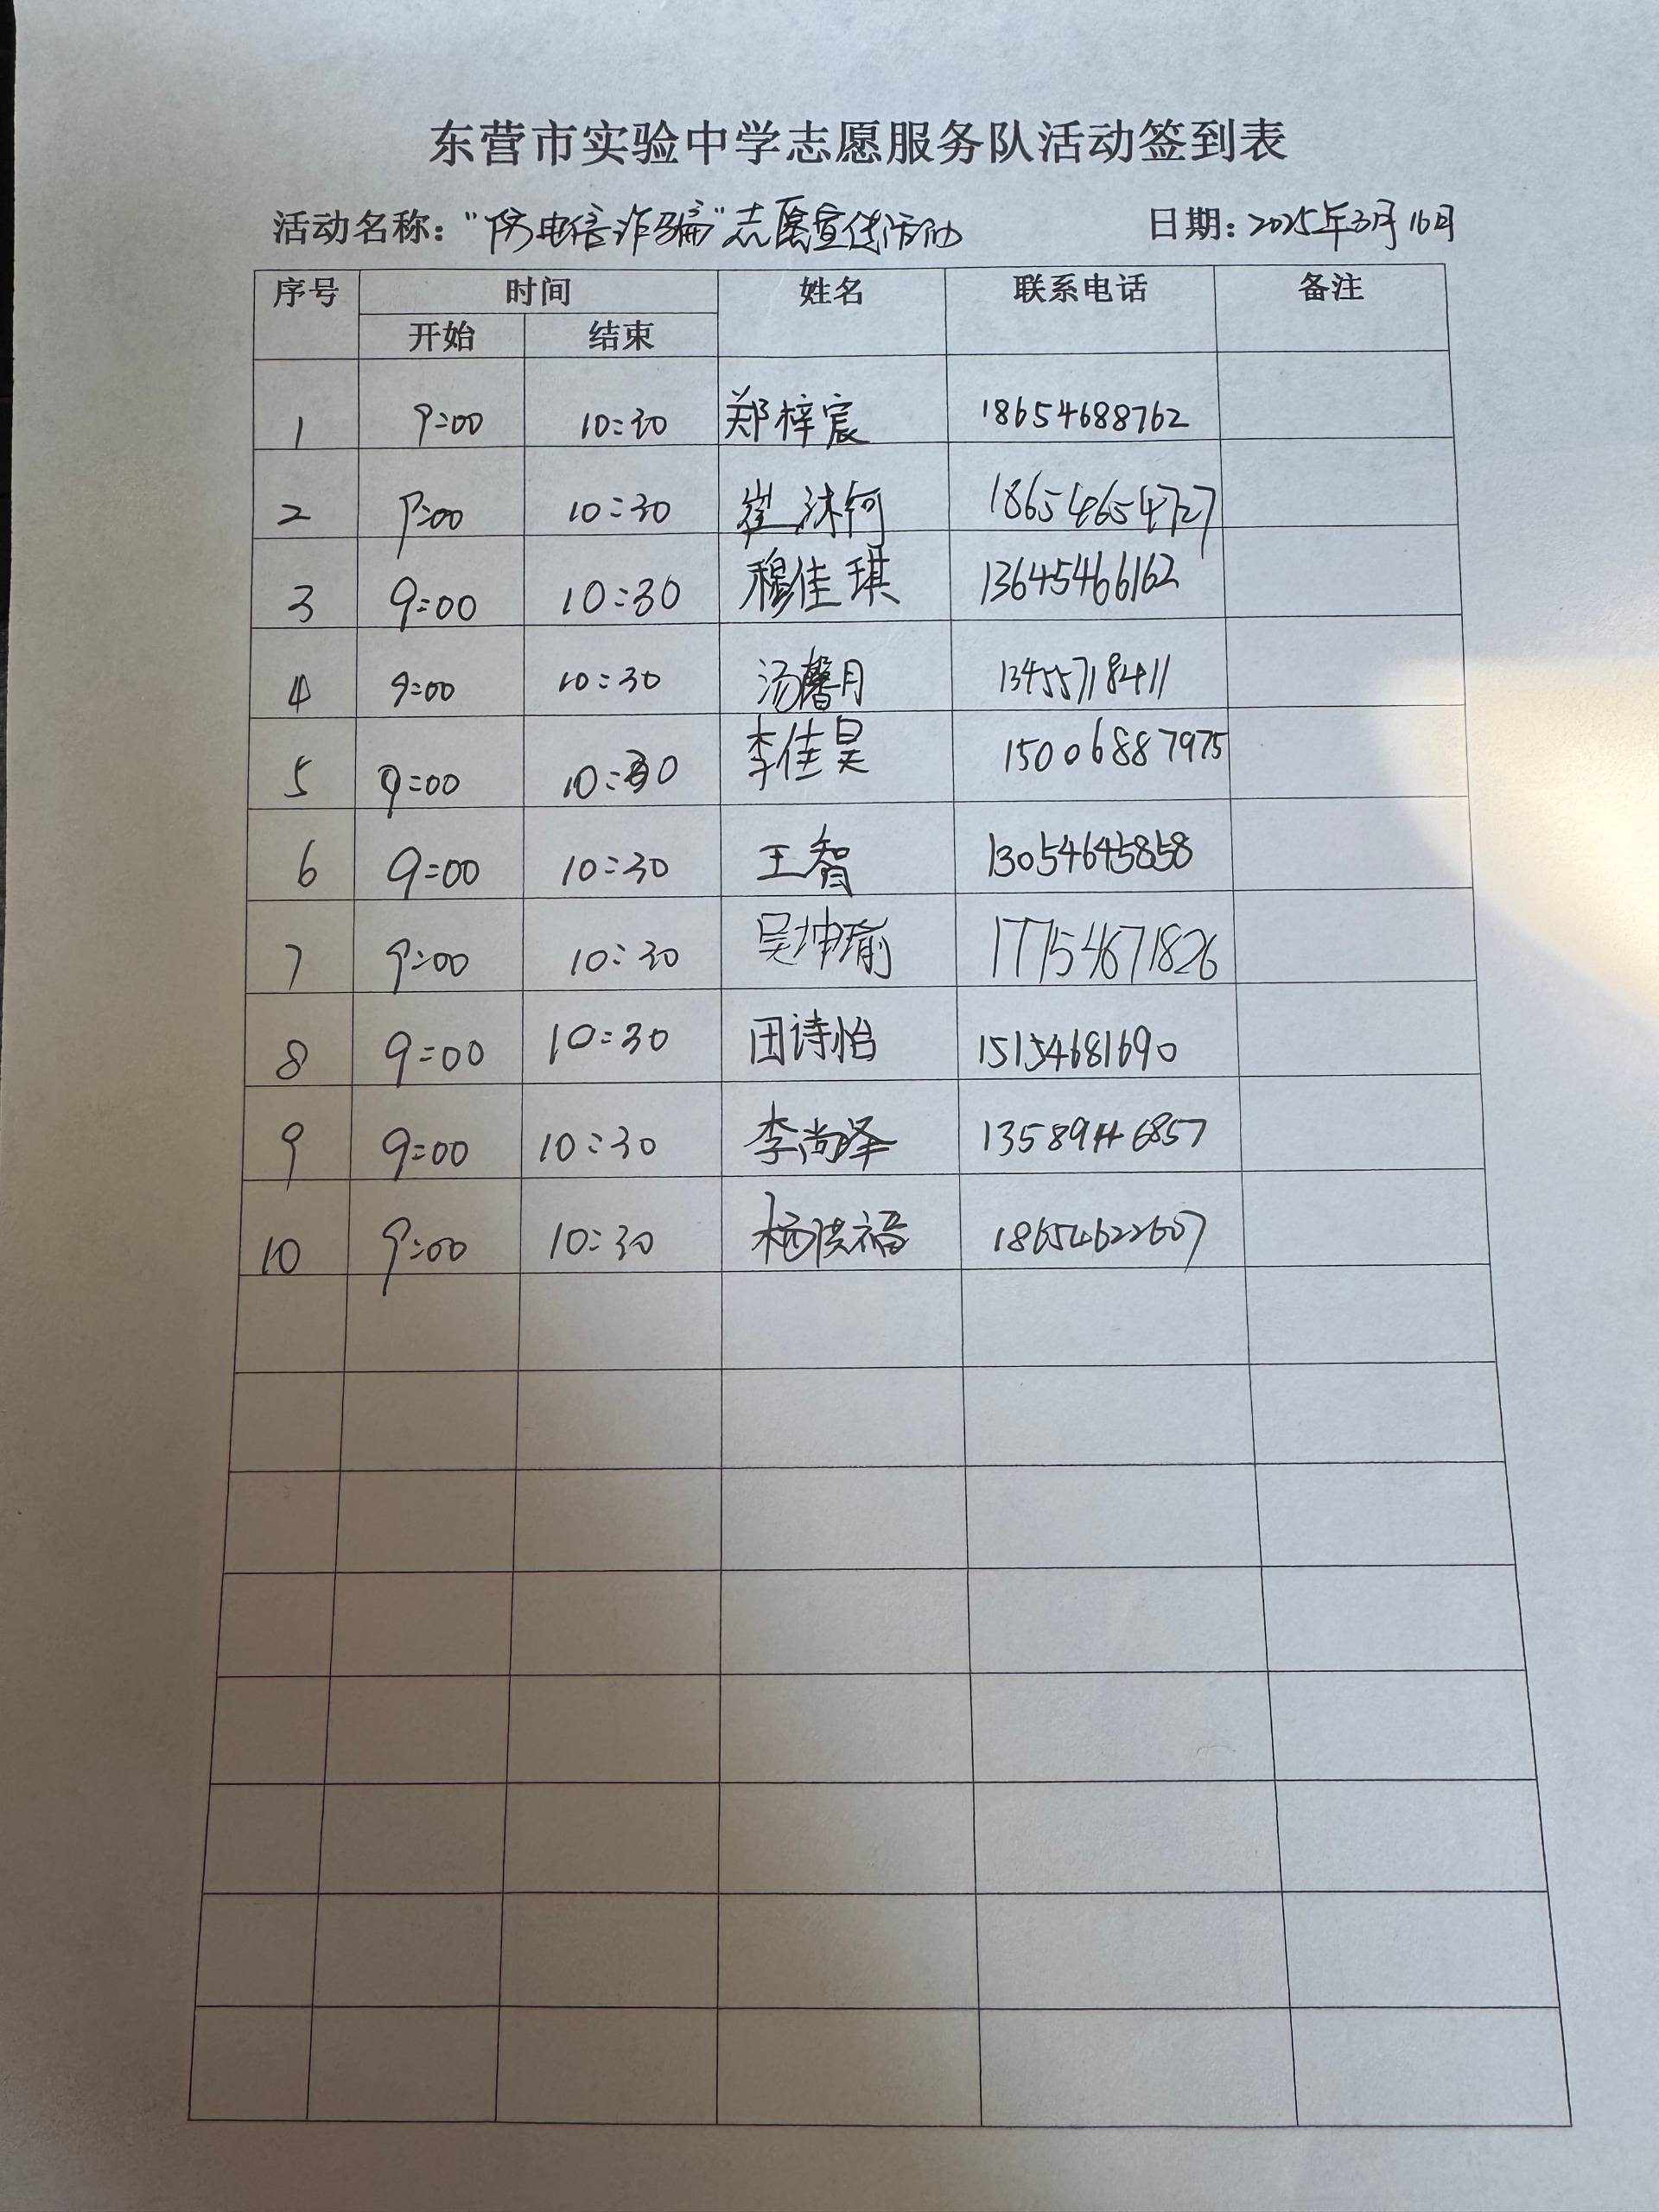 东营市实验中学志愿服务队活动签到表
活动名称："防电信诈骗"志愿宣传活动 日期：2025年3月16日
序号 时间 姓名 联系电话 备注
开始 结束
1 9:00 10:30 郑梓宸 18654688762
2 9:00 10:30 崔沐何 18654654727
3 9:00 10:30 穆佳琪 13645466162
4 9:00 10:30 汤馨月 13455718411
5 9:00 10:30 李佳昊 15006887975
6 9:00 10:30 王智 13054645858
7 9:00 10:30 吴坤瑜 17754671826
8 9:00 10:30 田诗怡 15154681690
9 9:00 10:30 李尚泽
10 9:00 10:30 杨洪福 18654622607